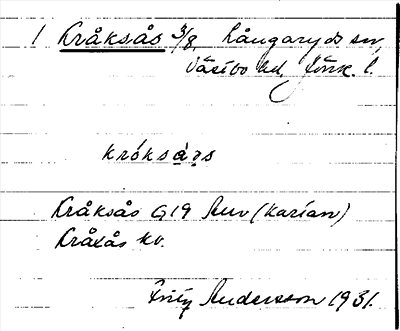 1 Kråksås 3/8, Långaryds sn,
Västbo hd, Jönk. l.
króksàs
Kråksås G19 Auv (Karlan)
Kråxås kv.
Fritz Andersson 1931.